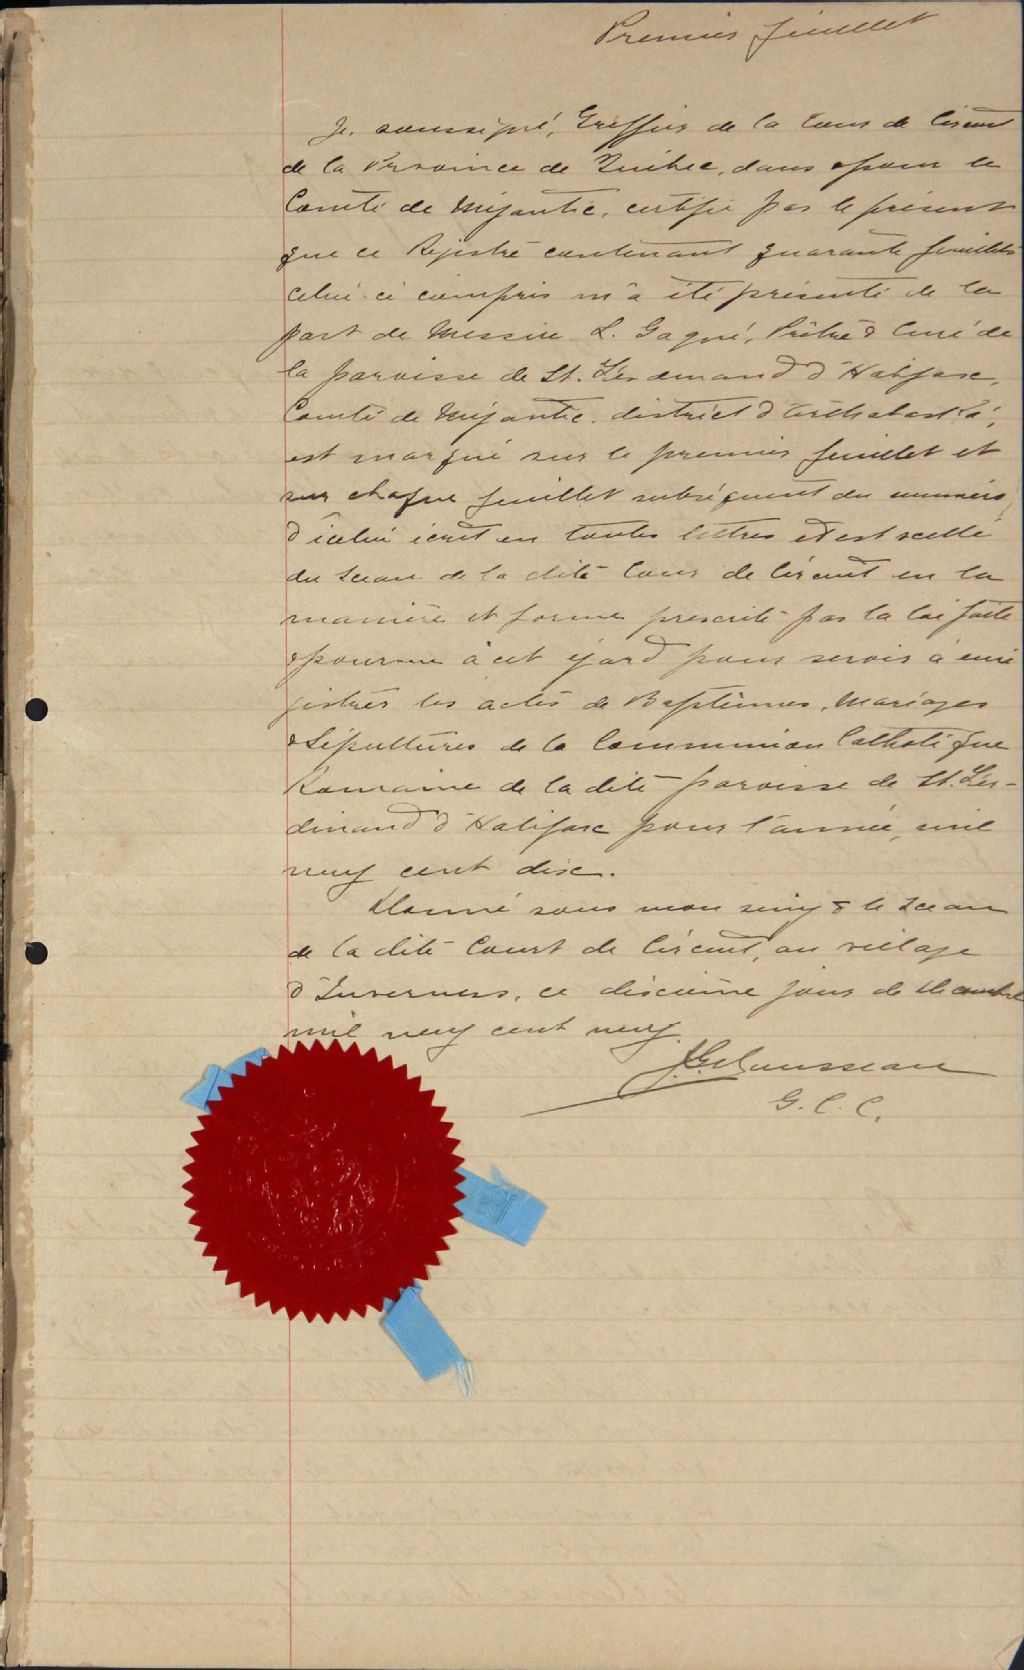 Premier feuillet
Je, soussigné, Greffier de la Cour de Circuit
de la Province de Québec, dans & pour le
Comté de Mégantic, certifie par le présent
que ce Registre contenant quarante feuillets
celui-ci compris m'a été présenté de la
part de Messire L. Gagné, Prêtre & Curé de
la paroisse de St. Ferdinand d'Halifax,
Comté de Mégantic, district d'Arthabaska,
est marqué sur le premier feuillet et
sur chaque feuillet subséquent du numéro
d'icelui écrit en toutes lettres et est scellé
du Sceau de la dite Cour de Circuit en la
manière et forme prescrite par la loi faite
& pourvue à cet égard pour servir à enre
gistrer les actes de Baptêmes, Mariages
& Sépultures de la Communion Catholique
Romaine de la dite paroisse de St. Fer-
dinand d'Halifax pour l'année, mil
neuf cent dix.
Donné sous mon seing & le Sceau
de la dite Court de Circuit, au village
d'Inverness, ce dixième jour de Décembre
mil neuf cent neuf.
Rousseau
G. C. C.